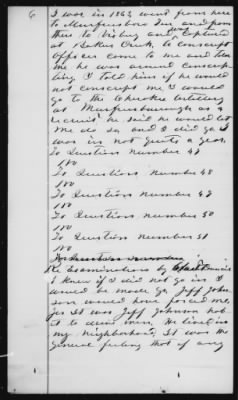 6
I was in 1863 went from here
to Murfreesboro Ten and from
there to Vicksburg and was captured
at Bakers Creek, to conscript
officer come to me and told
me he was around conscrip
ting I told him if he would
not conscript me I would
go to the Cherokee Artillery
at Murfreesborough as a
recruit he said he would let
me do so and I did go I
was in not quite a year.
To Question number 47
no
To Question number 48
no
To Question number 49
no
To Question number 50
no
To Question number 51
no
Re Examinations by
I knew if I did not go in I
would be made go Jeff John
son would have forced me,
yes It was Jeff Johnson hab
it to drive men, He lived in
my neighborhood, It was the
general feeling that if any